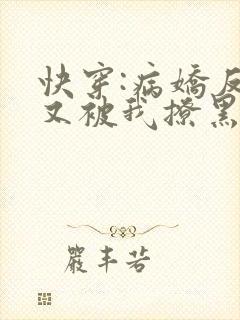 快穿:病嬌反
又被我撩黑
嚴丰若